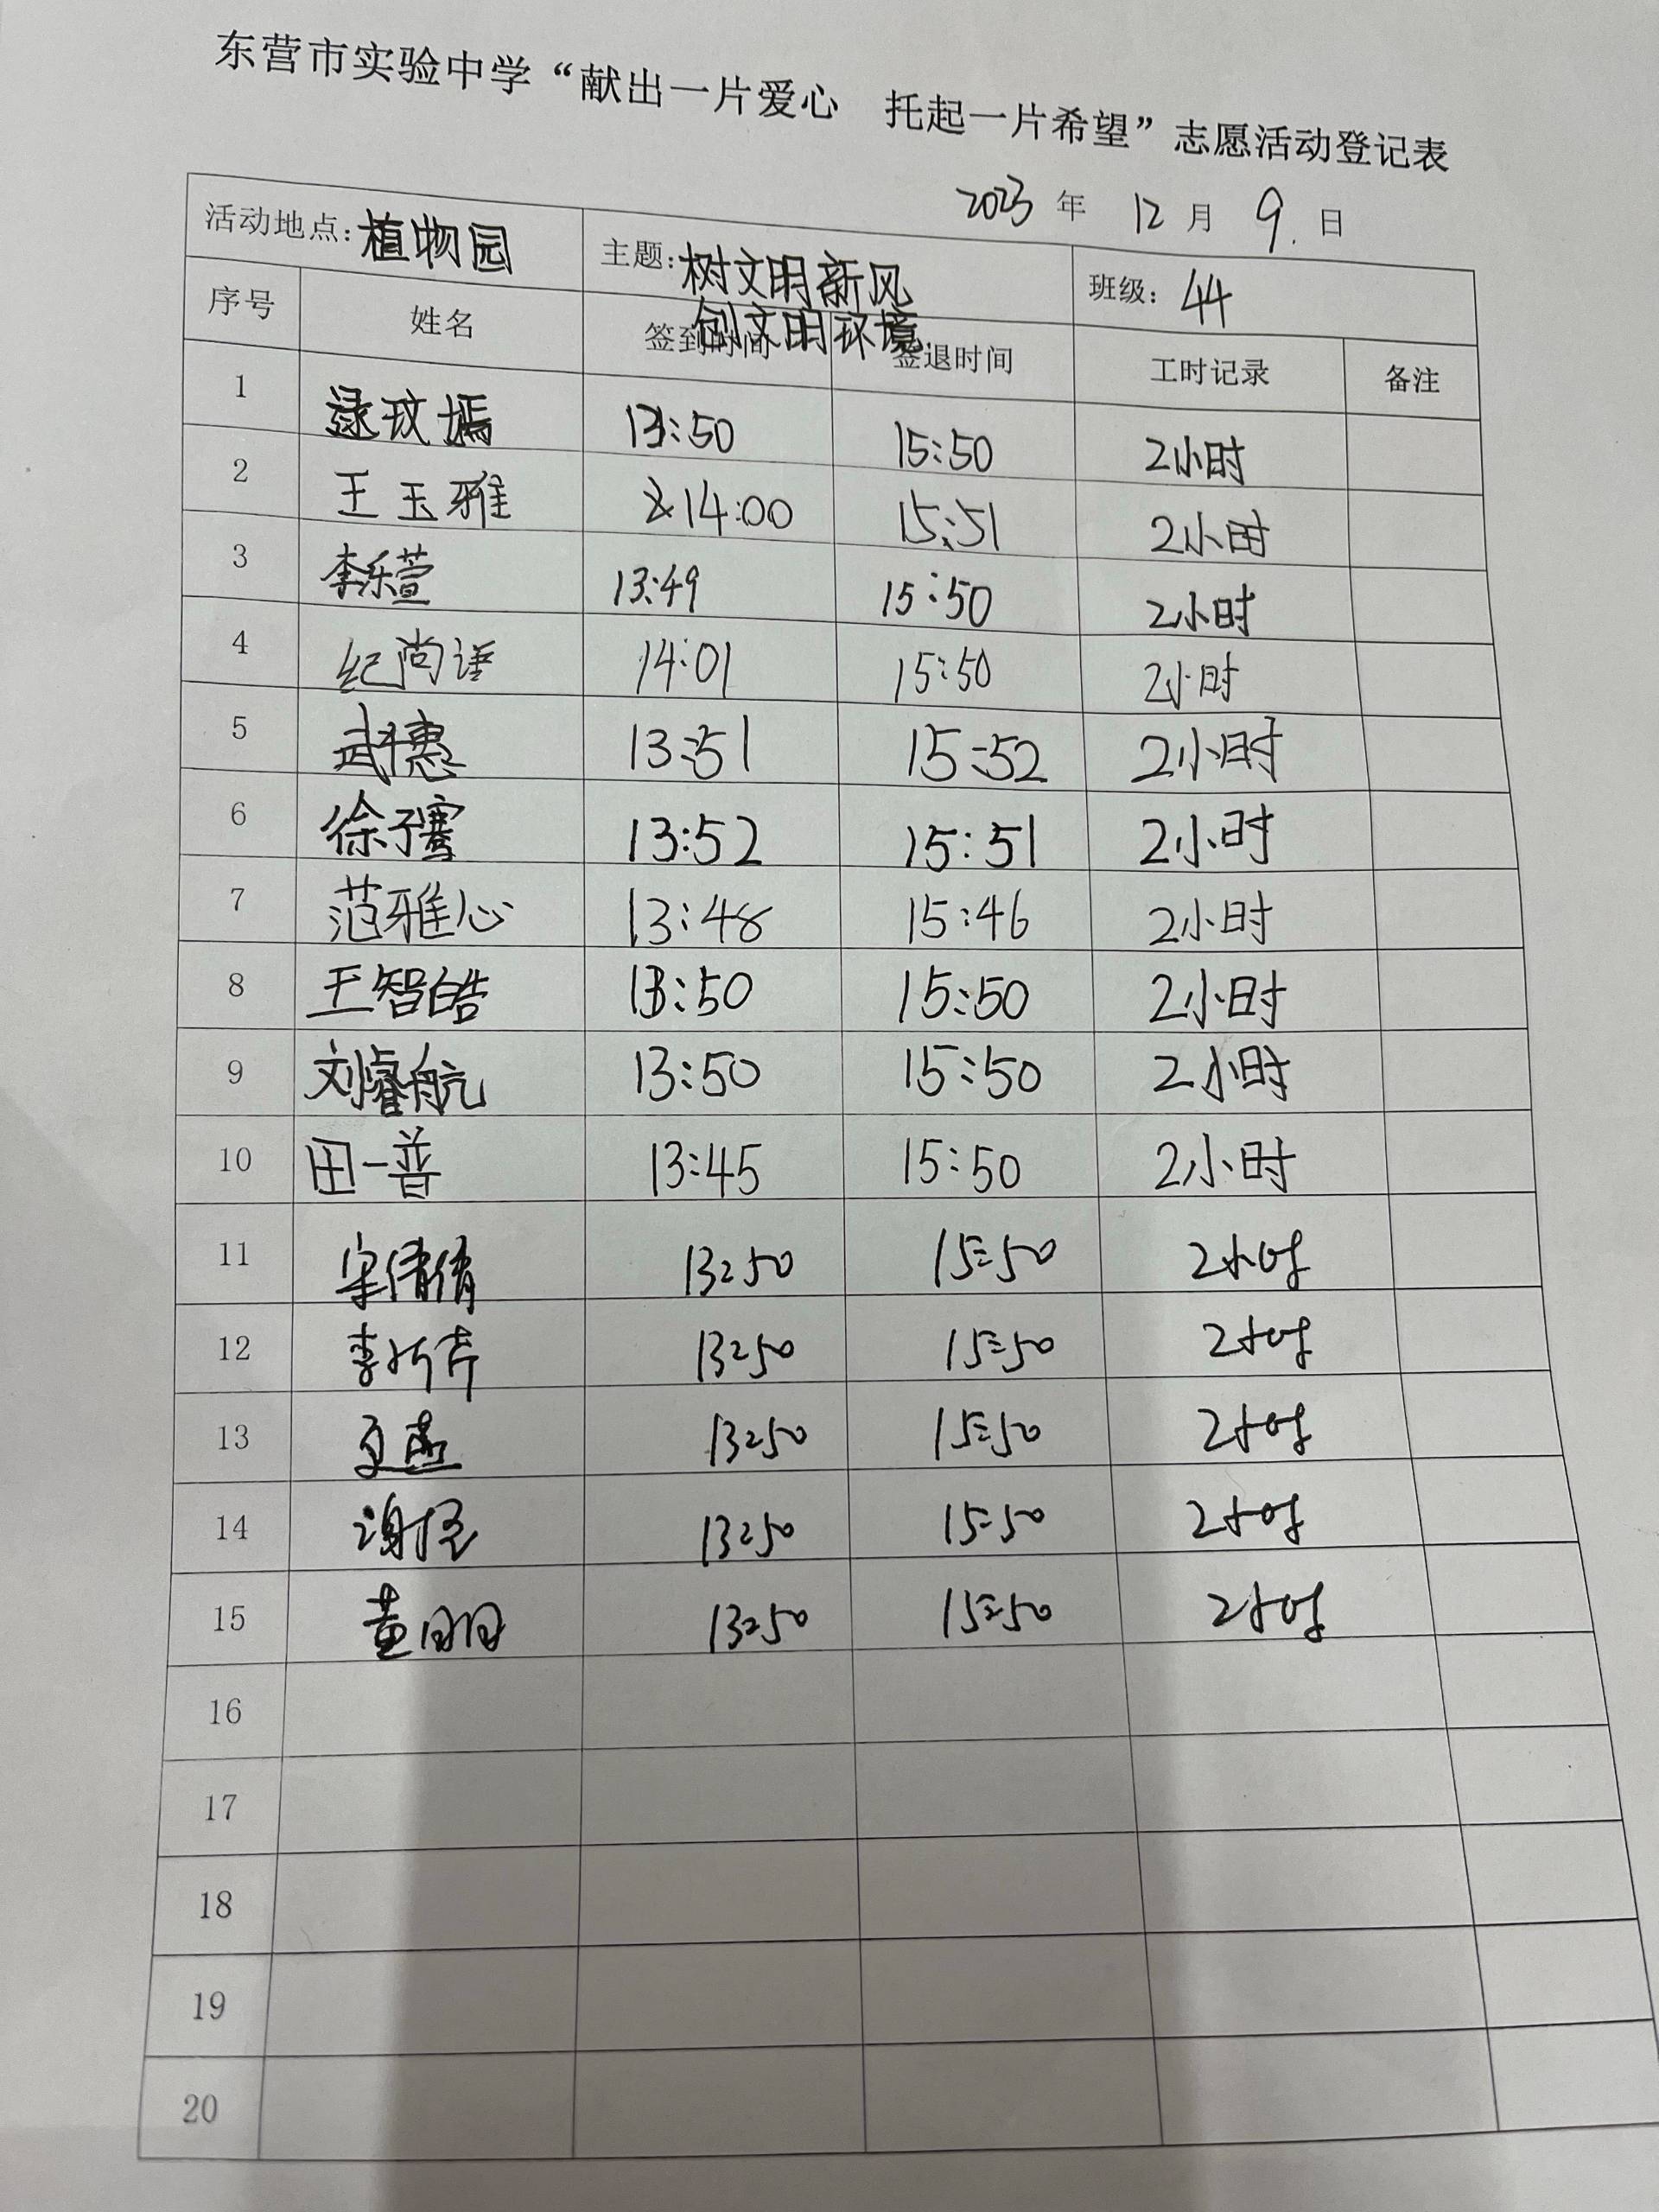 东营市实验中学“献出一片爱心 托起一片希望”志愿活动登记表
2023 年 12 月 9 日
活动地点: 植物园 主题: 树文明新风 班级: 44
创文明环境
序号 姓名 签到时间 签退时间 工时记录 备注
1 逯玟嫣 13:50 15:50 2小时
2 王玉雅 14:00 15:51 2小时
3 李乐萱 13:49 15:50 2小时
4 纪尚语 14:01 15:50 2小时
5 武惠 13:51 15:52 2小时
6 徐子骞 13:52 15:51 2小时
7 范雅心 13:48 15:46 2小时
8 王智皓 13:50 15:50 2小时
9 刘睿航 13:50 15:50 2小时
10 田一普 13:45 15:50 2小时
11 宋倩倩 13:50 15:50 2小时
12 李 13:50 15:50 2小时
13 13:50 15:50 2小时
14 谢 13:50 15:50 2小时
15 黄明明 13:50 15:50 2小时
16
17
18
19
20